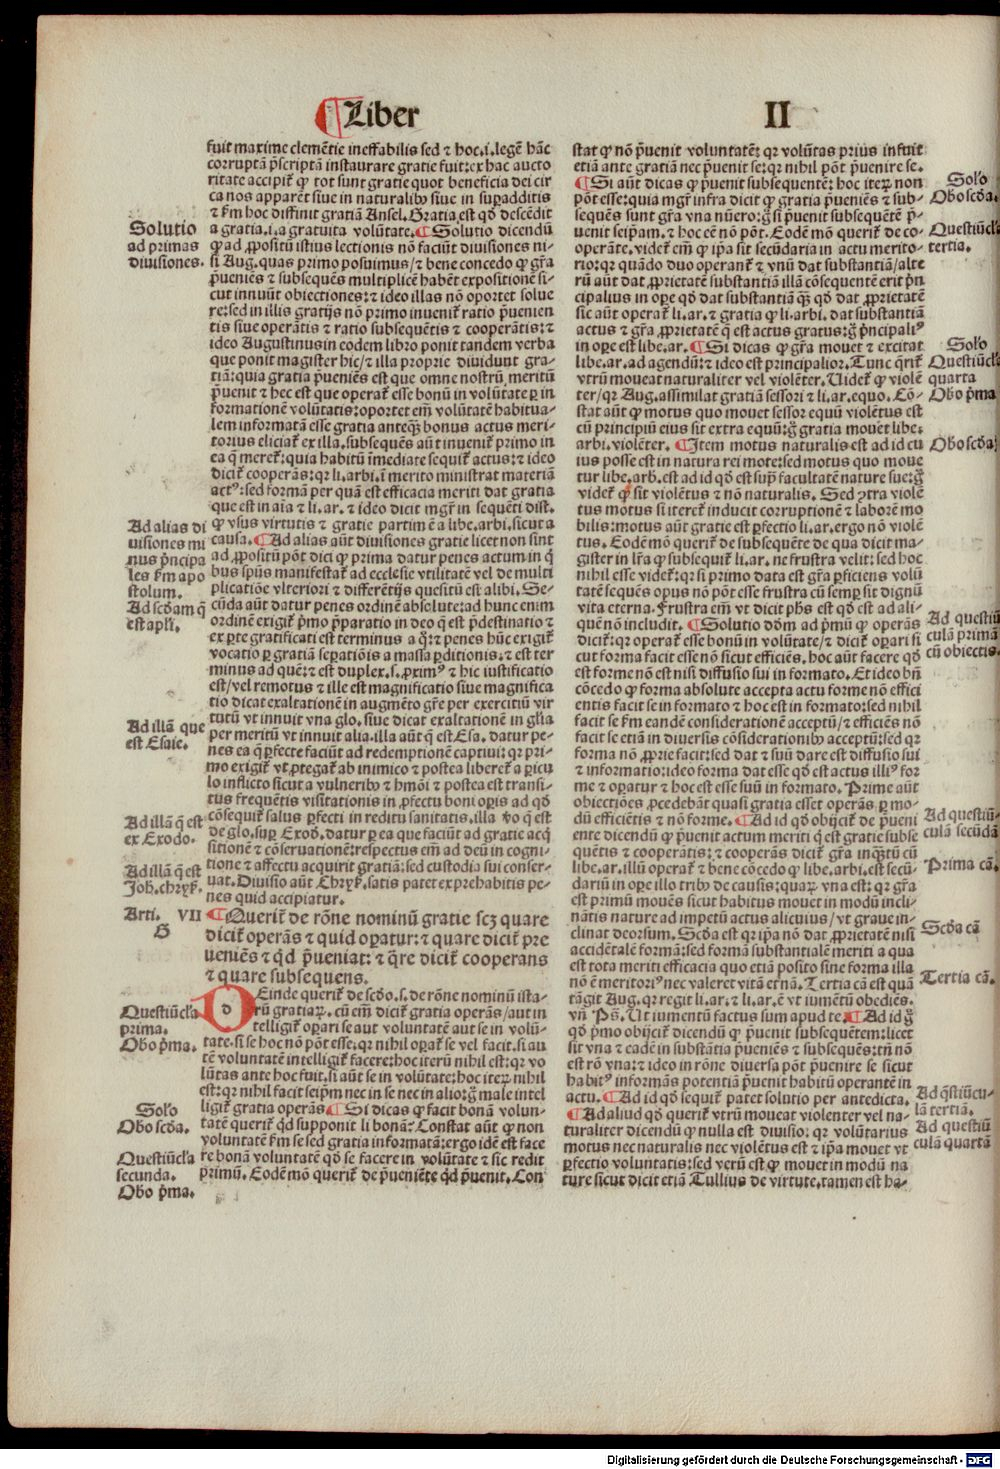 ¶Liber II
fuit maxime clemētie ineffabilis sed ⁊ hoc.i.legē hāc
corruptā p̄scriptā instaurare gratie fuit:ex hac aucto
ritate accipit̃ ꝙ tot sunt gratie quot beneficia dei cir
ca nos apparēt siue in naturalibꝰ siue in suꝑadditis
⁊ fm hoc diffinit gratiā Ansel. Gratia est qd̄ descēdit
a gratia.i.a gratuita volūtate. ¶Solutio dicendū
ꝙ ad ꝓpositū istius lectionis nō faciūt diuisiones ni-
si Aug. quas primo posuimus/⁊ bene concedo ꝙ gr̄a
p̄ueniēs ⁊ subsequēs multiplicē habēt expositionē si-
cut innuūt obiectiones:⁊ ideo illas nō oportet solue
re:sed in illis gratijs nō primo inuenit̃ ratio p̄uenien
tis siue operātis ⁊ ratio subsequētis ⁊ cooperātis:⁊
ideo Augustinus in eodem libro ponit tandem verba
que ponit magister hic/⁊ illa proprie diuidunt gra-
tiā:quia gratia p̄ueniēs est que omne nostrū meritū
p̄uenit ⁊ hec est que operat̃ esse bonū in volūtate ꝑ in
formationē volūtatis:oportet em̄ volūtatē habitua-
lem informatā esse gratia anteqꝫ bonus actus meri-
torius eliciat̃ ex illa.subsequēs aūt inuenit̃ primo in
ea q̄ meret̃:quia habitū īmediate sequit̃ actus:⁊ ideo
dicit̃ cooperās:qꝛ li.arbi.ī merito ministrat materiā
actꝰ:sed formā per quā est efficacia meriti dat gratia
que est in aīa ⁊ li.ar. ⁊ ideo dicit mgr̄ in sequēti dist.
ꝙ vsus virtutis ⁊ gratie partim ē a libe.arbi.sicut a
causa. ¶Ad alias aūt diuisiones gratie licet non sint
ad ꝓpositū pōt dici ꝙ prima datur penes actum in q̄
bus spūs manifestat̃ ad ecclesie vtilitatē vel de multi
plicatiōe vlteriori ⁊ differētijs quesitū est alibi. Se-
cūda aūt datur penes ordinē absolute:ad hunc enim
ordinē exigit̃ p̄mo p̄paratio in deo q̄ est p̄destinatio ⁊
ex ꝑte gratificati est terminus a q̄:⁊ penes hūc exigit̃
vocatio ꝑ gratiā seꝑatiōis a massa ꝑditionis:⁊ est ter
minus ad quē:⁊ est duplex.s.ꝓximꝰ ⁊ hic iustificatio
est/vel remotus ⁊ ille est magnificatio siue magnifica
tio dicat exaltationē in augmēto gr̄e per exercitiū vir
tutū vt innuit vna glo. siue dicat exaltationē in gl̄ia
per meritū vt innuit alia.illa aūt q̄ est Esa. datur pe-
nes ea q̄ ꝑfecte faciūt ad redemptionē captiui:qꝛ pri-
mo exigit̃ vt ꝓtegat̃ ab inimico ⁊ postea liberet̃ a ꝑicu
lo inflicto sicut a vulneribꝰ ⁊ hmōi ⁊ postea est transi-
tus frequētis visitationis in ꝓfectu boni oꝑis ad qd̄
cōsequit̃ salus ꝑfecti in reditu sanitatis.illa v̄o q̄ est
de glo.suꝑ Exod̄. datur ꝑ ea que faciūt ad gratie acq̄
sitionē ⁊ cōseruationē:respectus em̄ ad deū in cogni-
tione ⁊ affectu acquirit gratiā:sed custodia sui conser-
uat. Diuisio aūt Chryſ. satis patet ex prehabitis pe-
nes quid accipiatur.
¶Querit̃ de rōne nominū gratie scꝫ quare
dicit̃ operās ⁊ quid oꝑatur:⁊ quare dicit̃ pre
ueniēs ⁊ qd̄ p̄ueniat: ⁊ q̄re dicit̃ cooperans
⁊ quare subsequens.
DEinde querit̃ de scd̄o.s.de rōne nominū ista-
rū gratiaꝝ. cū em̄ dicit̃ gratia operās/aut in
telligit̃ oꝑari se aut voluntatē aut se in volū-
tate.si se hoc nō pōt esse:qꝛ nihil oꝑat̃ se vel facit.si au
tē voluntatē intelligit̃ facere:hoc iterū nihil est:qꝛ vo
lūtas ante hoc fuit.si aūt se in volūtate:hoc iteꝝ nihil
est:qꝛ nihil facit seip̄m nec in se nec in alio:g̊ male intel
ligit̃ gratia operās. ¶Si dicas ꝙ facit bonā volun-
tatē querit̃ qd̄ supponit li bonā: Constat aūt ꝙ non
voluntatē fm se sed gratia informatā:ergo idē est face
re bonā voluntatē qd̄ se facere in volūtate ⁊ sic redit
primū. Eodē mō querit̃ de p̄ueniēte qd̄ p̄uenit. Con
Solutio
ad primas
diuisiones.
Ad alias di
uisiones mi
nus p̄ncipa
les fm apo
stolum.
Ad scd̄am q̄
est apl̄i.
Ad illā que
est Esaie.
Ad illā q̄ est
ex Exodo.
Ad illā q̄ est
Joh.chryſ.
Arti. VII
G
Questiūcl̄a
prima.
Obo p̄ma.
Solo
Obo scd̄a.
Questiūcl̄a
secunda.
Obo p̄ma.
stat ꝙ nō p̄uenit voluntatē: qꝛ volūtas prius infuit
etiā ante gratiā nec p̄uenit se:qꝛ nihil pōt p̄uenire se.
¶Si aūt dicas ꝙ p̄uenit subsequentē: hoc iteꝝ non
pōt esse:quia mgr̄ infra dicit ꝙ gratia p̄ueniēs ⁊ sub-
sequēs sunt gr̄a vna nūero:g̊ si p̄uenit subsequētē p̄-
uenit seipam. ⁊ hoc eē nō pōt. Eodē mō querit̃ de co-
operāte. videt̃ em̄ ꝙ ip̄a sit secūdaria in actu merito-
rio:qꝛ quādo duo operant̃ ⁊ vnū dat substantiā/alte
rū aūt dat ꝓprietatē substantiā illā cōsequentē erit p̄n
cipalius in oꝑe qd̄ dat substantiā qꝫ qd̄ dat ꝓprietatē
sic aūt operat̃ li.ar. ⁊ gratia ꝙ li.arbi. dat substantiā
actus ⁊ gr̄a ꝓprietatē q̄ est actus gratus:g̊ p̄ncipaliꝰ
in oꝑe est libe.ar. ¶Si dicas ꝙ gr̄a mouet ⁊ excitat
libe.ar.ad agendū:⁊ ideo est principalior. Tunc q̄rit̃
vtrū moueat naturaliter vel violēter. Videt̃ ꝙ violē
ter/qꝛ Aug. assimilat gratiā sessori ⁊ li.ar.equo. Cō-
stat aūt ꝙ motus quo mouet sessor equū violētus est
cū principiū eius sit extra equū:g̊ gratia mouet libe.
arbi.violēter. ¶Item motus naturalis est ad id cu
ius posse est in natura rei mote:sed motus quo moue
tur libe.arb. est ad id qd̄ est supra facultatē nature sue:g̊
videt̃ ꝙ sit violētus ⁊ nō naturalis. Sed ꝯtra violē
tus motus si iteret̃ inducit corruptionē ⁊ laborē mo
bilis:motus aūt gratie est ꝑfectio li.ar.ergo nō violē
tus. Eodē mō querit̃ de subsequēte de qua dicit ma-
gister in lr̄a ꝙ subsequit̃ li.ar. ne frustra velit:sed hoc
nihil esse videt̃:qꝛ si primo data est gr̄a ꝑficiens volū
tatē sequēs opus nō pōt esse frustra cū semꝑ sit dignū
vita eterna. Frustra em̄ vt dicit ph̄s est qd̄ est ad ali-
quē nō includit. ¶Solutio dd̄m ad p̄mū ꝙ operās
dicit̃:qꝛ operat̃ esse bonū in volūtate/⁊ dicit̃ oꝑari si
cut forma facit esse nō sicut efficiēs. hoc aūt facere qd̄
est forme nō est nisi diffusio sui in formato. Et ideo bn̄
cōcedo ꝙ forma absolute accepta actu forme nō effici
entis facit se in formato ⁊ hoc est in formato:sed nihil
facit se fm eandē considerationē acceptū/⁊ efficiēs nō
facit se etiā in diuersis cōsiderationibꝰ acceptū:sed qꝛ
forma nō ꝓprie facit:sed dat ⁊ suū dare est diffusio sui
⁊ informatio:ideo forma dat esse qd̄ est actus illiꝰ for
me ⁊ oꝑatur ⁊ hoc est esse suū in formato. Prime aūt
obiectiōes ꝓcedebāt quasi gratia esset operās ꝑ mo-
dū efficiētis ⁊ nō forme. ¶Ad id qd̄ obijcit̃ de p̄ueni
ente dicendū ꝙ p̄uenit actum meriti q̄ est gratie subse
quētis ⁊ cooperatis: ⁊ cooperās dicit̃ gr̄a inqꝫtū cū
libe.ar.illū operat̃ ⁊ bene cōcedo ꝙ libe.arbi.est secū-
dariū in oꝑe illo tribꝰ de causis:quaꝝ vna est: qꝛ gr̄a
est primū mouēs sicut habitus mouet in modū incli-
nātis nature ad impetū actus alicuius/vt graue in-
clinat deorsum. Scd̄a est qꝛ ip̄a nō dat ꝓprietatē nisi
accidētalē formā:sed formā substantialē meriti a qua
est tota meriti efficacia quo etiā posito sine forma illa
nō ē meritoriꝰ nec valeret vitā et̄nā. Tertia cā est quā
tāgit Aug. qꝛ regit li.ar. ⁊ li.ar.ē vt iumētū obediēs.
vn̄ Ps̄. Ut iumentū factus sum apud te. ¶Ad id g̊
qd̄ p̄mo obijcit̃ dicendū ꝙ p̄uenit subsequētem:licet
sit vna ⁊ eadē in substātia p̄ueniēs ⁊ subsequēs:tn̄ nō
est rō vna:⁊ ideo in rōne diuersa pōt p̄uenire se sicut
habitꝰ informās potentiā p̄uenit habitū operantē in
actu. ¶Ad id qd̄ sequit̃ patet solutio per antedicta.
¶Ad aliud qd̄ querit̃ vtrū moueat violenter vel na-
turaliter dicendū ꝙ nulla est diuisio: qꝛ volūtarius
motus nec naturalis nec violētus est ⁊ ip̄a mouet vt
ꝑfectio voluntatis:sed verū est ꝙ mouet in modū na
ture sicut dicit etiā Tullius de virtute.tamen est ha-
Solo
Obo scd̄a.
Questiūcl̄a
tertia.
Solo
Questiūcl̄a
quarta
Obo p̄ma
Obo scd̄a
Ad questiū
culā primā
cū obiectis.
Ad questiū-
culā secūdā
Prima cā.
Scd̄a cā
Tertia cā.
Ad q̄stiūcu-
lā tertiā.
Ad questiū
culā quartā
Digitalisierung gefördert durch die Deutsche Forschungsgemeinschaft - DFG